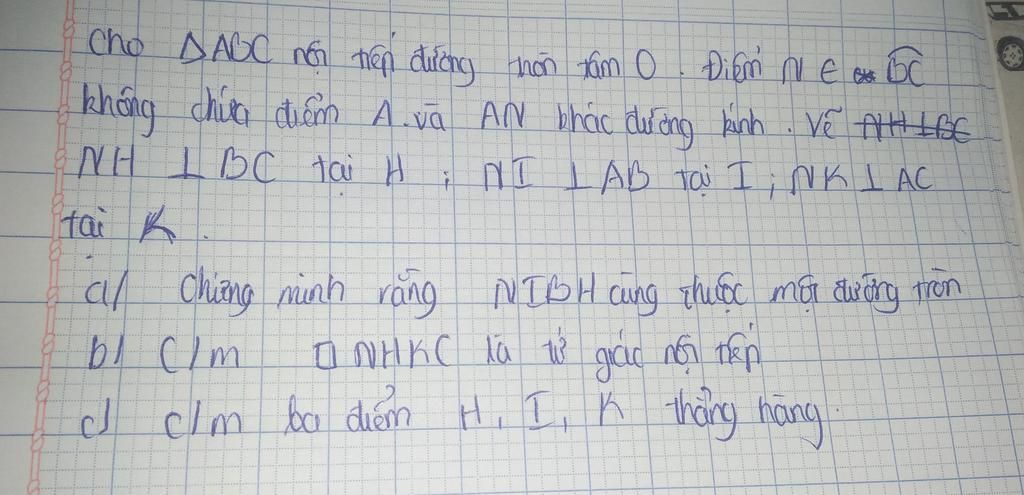 Cho ΔABC nội tiếp đường tròn tâm O. Điểm N ∈ BC
không chứa điểm A. và AN khác đường kính. Vẽ AH⊥BC
NH ⊥ BC tại H ; NI ⊥ AB tại I ; NK ⊥ AC
tại K.
a/ Chứng minh rằng NIBH cùng thuộc một đường tròn
b/ C/m □ NHKC là tứ giác nội tiếp
c/ c/m ba điểm H, I, K thẳng hàng.